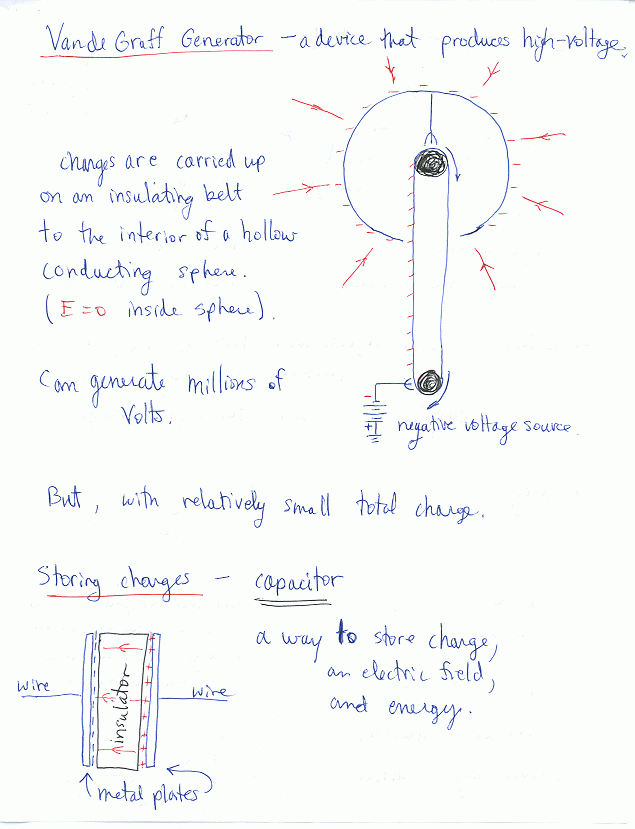 Van de Graff Generator - a device that produces high-voltage.
charges are carried up
on an insulating belt
to the interior of a hollow
conducting sphere.
(E = 0 inside sphere).
Can generate millions of
Volts.
negative voltage source
But, with relatively small total charge.
Storing charges - capacitor
a way to store charge,
an electric field,
and energy.
wire
insulator
wire
metal plates